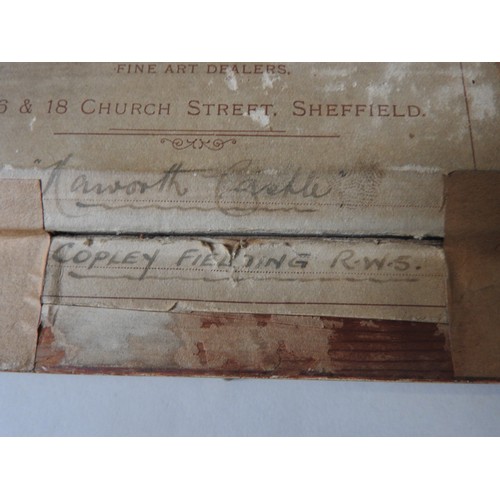 FINE ART DEALERS,
6 & 18 CHURCH STREET, SHEFFIELD.
"Naworth Castle"
COPLEY FIELDING R.W.S.